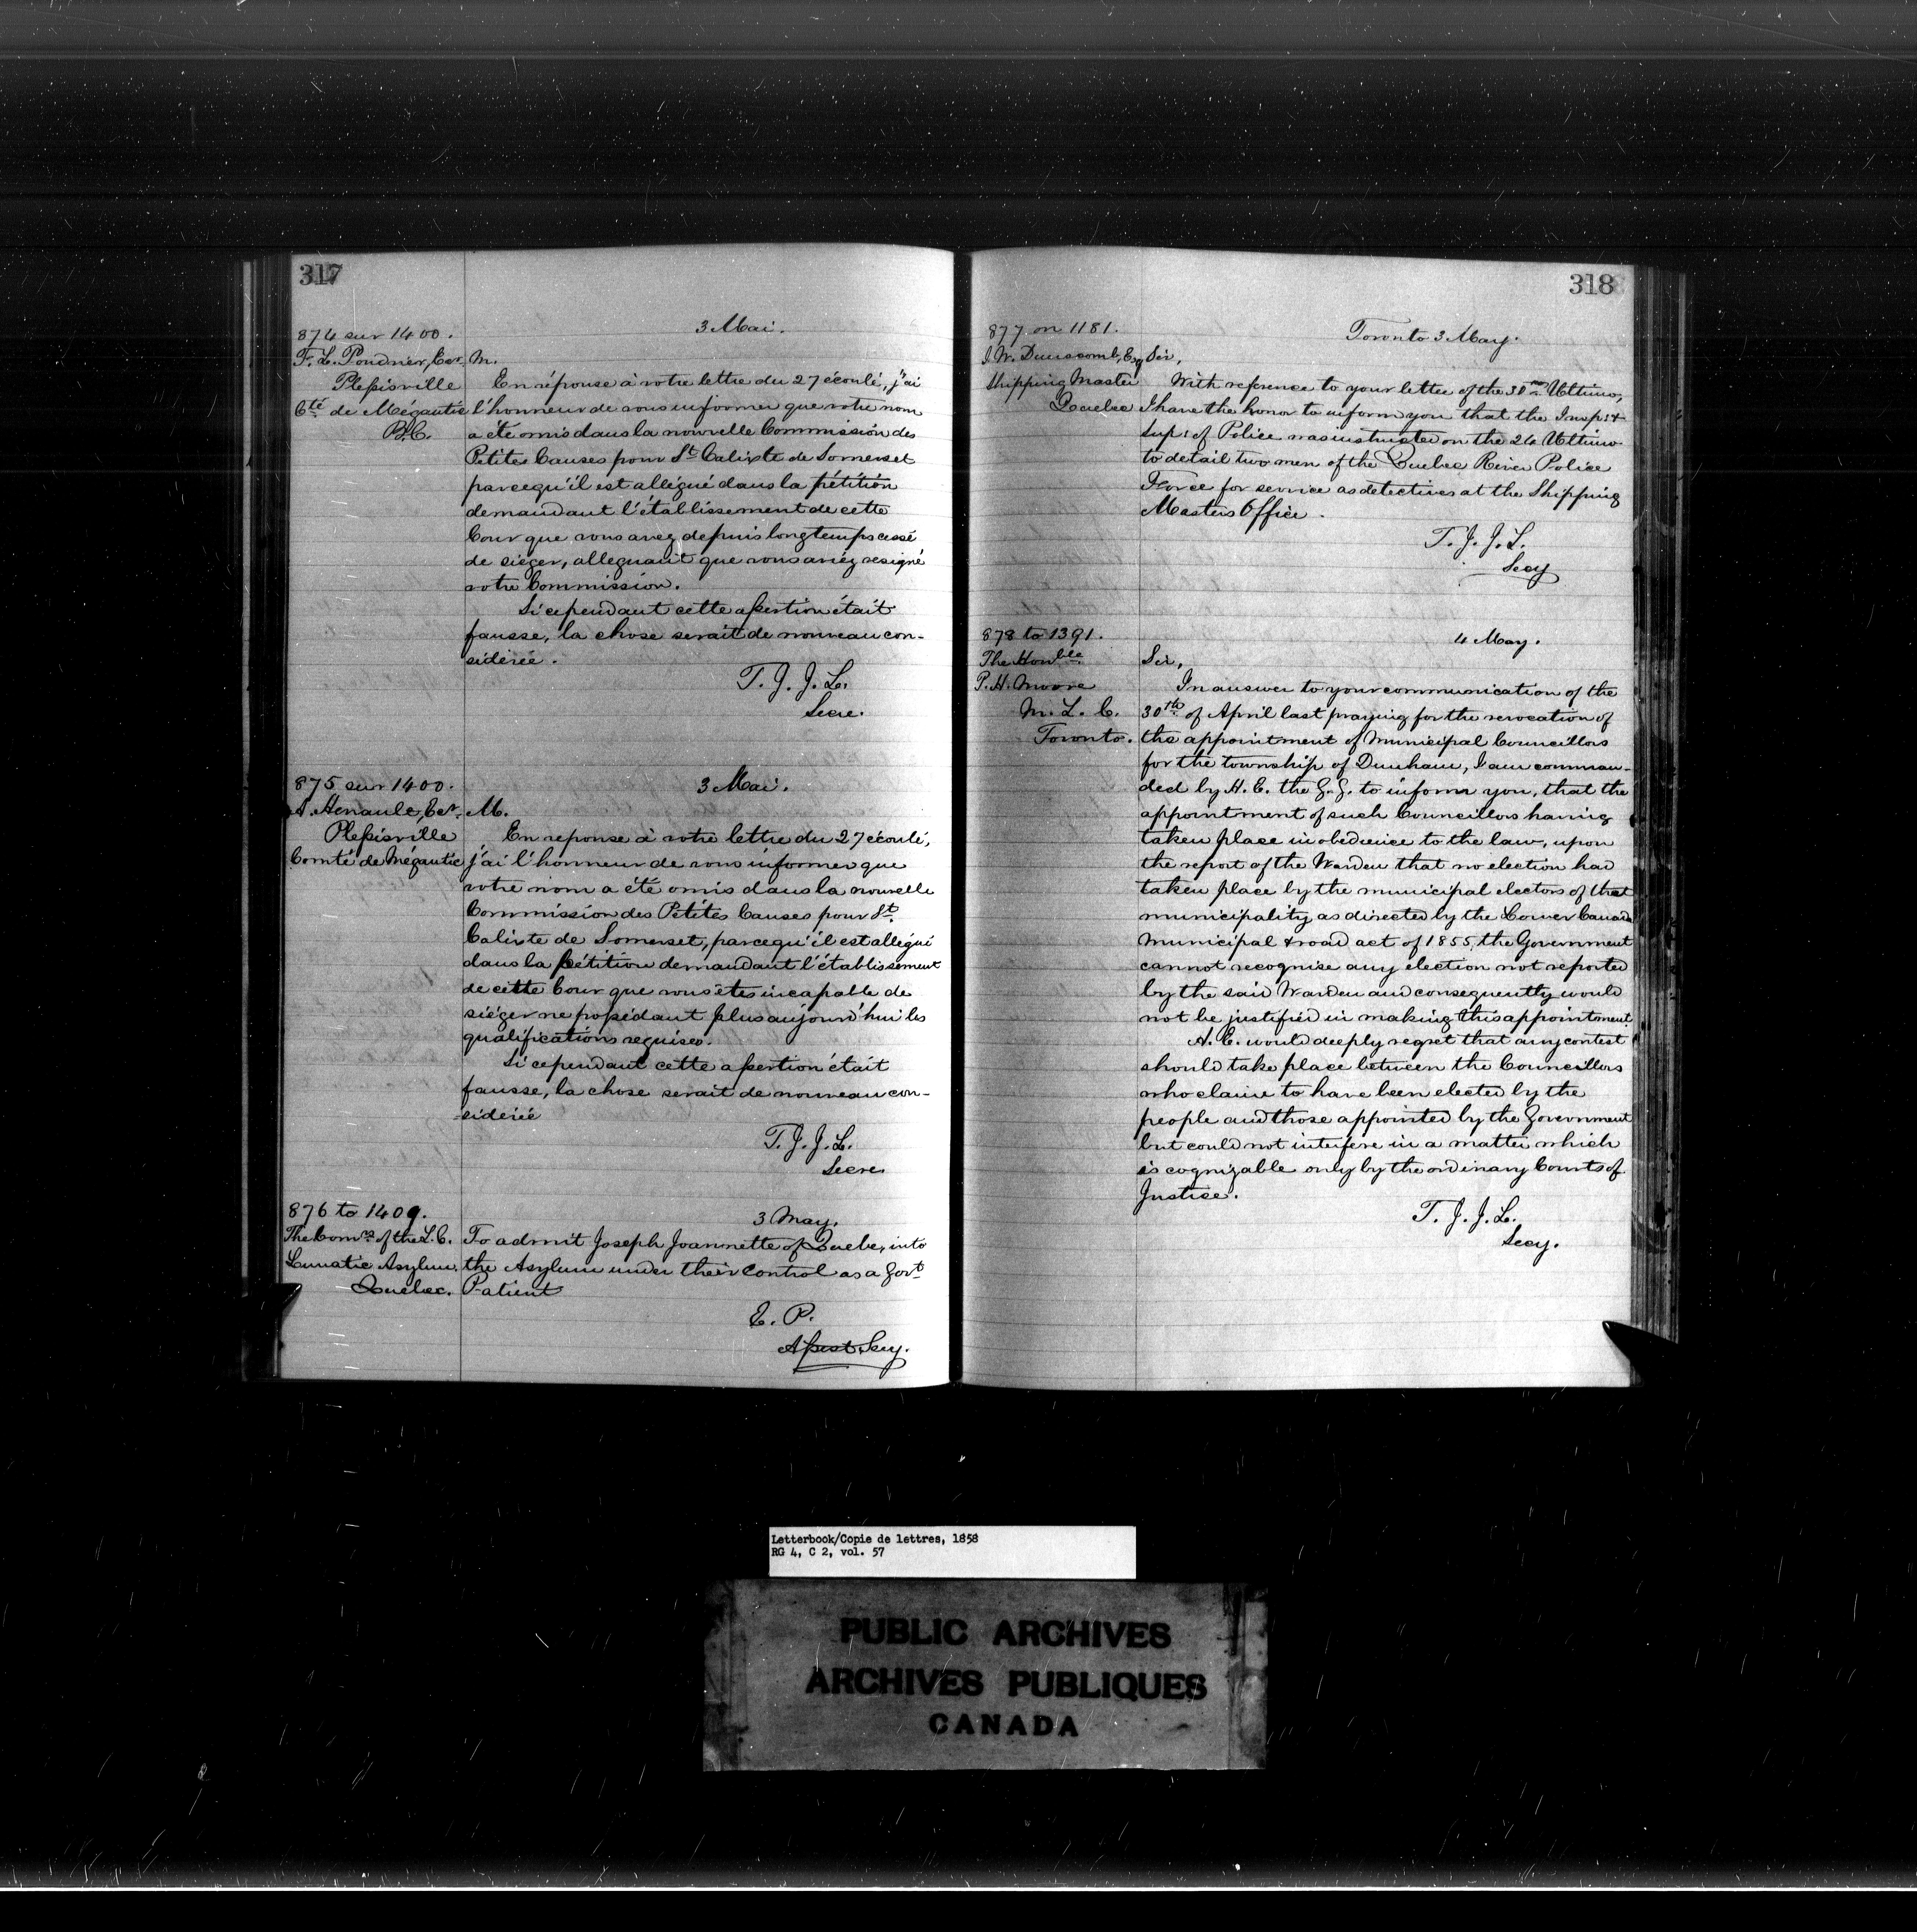 317
874 sur 1400.
3 Mai.
F. L. Poudrier, Ecr.
Plessisville
Cté de Mégantic
B.C.
M.
En réponse à votre lettre du 27 écoulé, j'ai
l'honneur de vous informer que votre nom
a été omis dans la nouvelle Commission des
Petites Causes pour St Calixte de Somerset
parcequ'il est allégué dans la pétition
demandant l'établissement de cette
Cour que vous avez depuis longtemps cessé
de sieger, alleguant que vous aviez resigné
votre Commission.
Si cependant cette assertion était
fausse, la chose serait de nouveau con-
sidérée.
T. J. J. L.
Secre.
875 sur 1400.
3 Mai.
Henault, Ecr.
Plessisville
Comté de Mégantic
M.
En reponse à votre lettre du 27 écoulé,
j'ai l'honneur de vous informer que
votre nom a été omis dans la nouvelle
Commission des Petites Causes pour St.
Calixte de Somerset, parcequ'il est allégué
dans la pétition demandant l'établissement
de cette Cour que vous êtes incapable de
siéger ne possédant plus aujourd'hui les
qualifications requises.
Si cependant cette assertion était
fausse, la chose serait de nouveau con-
-sidérée
T. J. J. L.
Secre
876 to 1409.
3 May.
The Comrs of the L.C.
Lunatic Asylum.
Quebec.
To admit Joseph Joannette of Quebec, into
the Asylum under their control as a Govt
Patient
E. P.
Assist. Secy.
318
877 on 1181.
Toronto 3 May.
J. W. Dunscomb, Esq
Shipping Master
Quebec
Sir,
With reference to your letter of the 30th Ultimo,
I have the honor to inform you that the Insp: &
Sup: of Police was instructed on the 24 Ultimo
to detail two men of the Quebec River Police
Force for service as detectives at the Shipping
Masters Office.
T. J. J. L.
Secy
878 to 1391.
4 May.
The Honble
P. H. Moore
M. L. C.
Toronto.
Sir,
In answer to your communication of the
30th of April last praying for the revocation of
the appointment of Municipal Councillors
for the township of Dunham, I am comman-
ded by H. E. the G. G. to inform you, that the
appointment of such Councillors having
taken place in obedience to the law, upon
the report of the Warden that no election had
taken place by the municipal electors of that
municipality as directed by the Lower Canada
Municipal & road act of 1855, the Government
cannot recognise any election not reported
by the said Warden and consequently would
not be justified in making this appointment.
H. E. would deeply regret that any contest
should take place between the Councillors
who claim to have been elected by the
people and those appointed by the Government
but could not interfere in a matter which
is cognizable only by the ordinary Courts of
Justice.
T. J. J. L.
Secy.
Letterbook/Copie de lettres, 1858
RG 4, C 2, vol. 57
PUBLIC ARCHIVES
ARCHIVES PUBLIQUES
CANADA